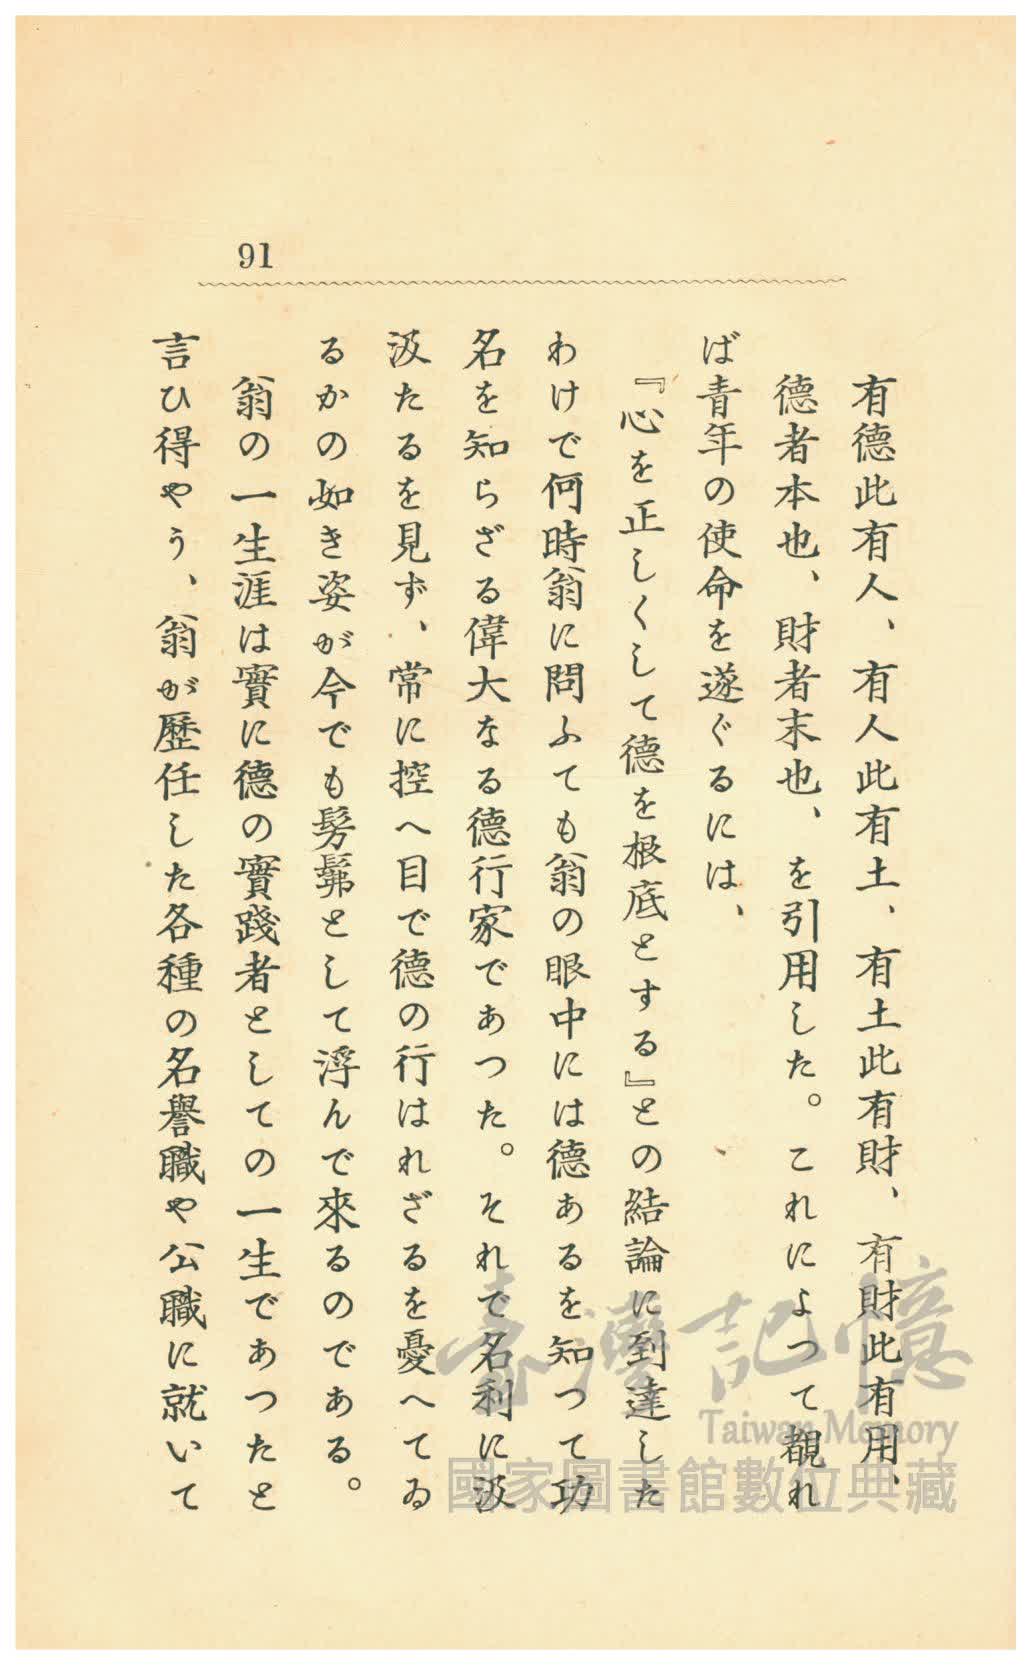 91
有德此有人、有人此有土、有土此有財、有財此有用、
德者本也、財者末也、を引用した。これによつて覩れ
ば青年の使命を遂ぐるには、
『心を正しくして德を根底とする』との結論に到達した
わけで何時翁に問ふても翁の眼中には德あるを知つて功
名を知らざる偉大なる德行家であつた。それで名利に汲
汲たるを見ず、常に控へ目で德の行はれざるを憂へてゐ
るかの如き姿が今でも髣髴として浮んで來るのである。
翁の一生涯は實に德の實踐者としての一生であつたと
言ひ得やう、翁が歷任した各種の名譽職や公職に就いて
臺灣記憶
Taiwan Memory
國家圖書館數位典藏